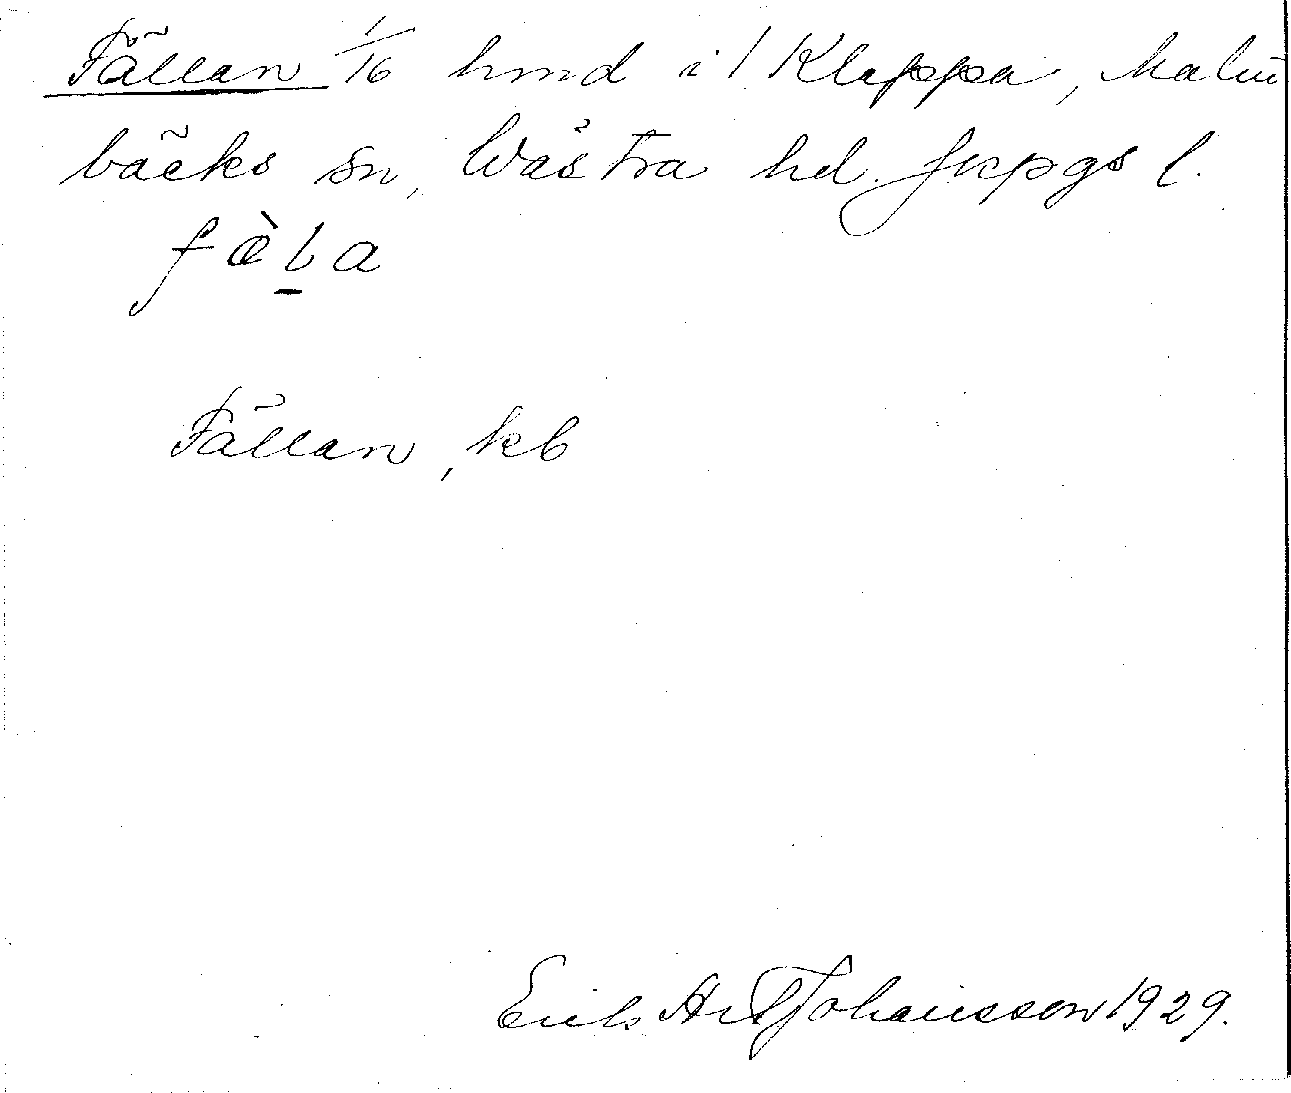 Fällan 1/16 hmd i 1 Klappa, Malm
bäcks sn, Västra hd. Jkpgs l.
fæ̀l̠a
Fällan, kb
Erik Johansson 1929.